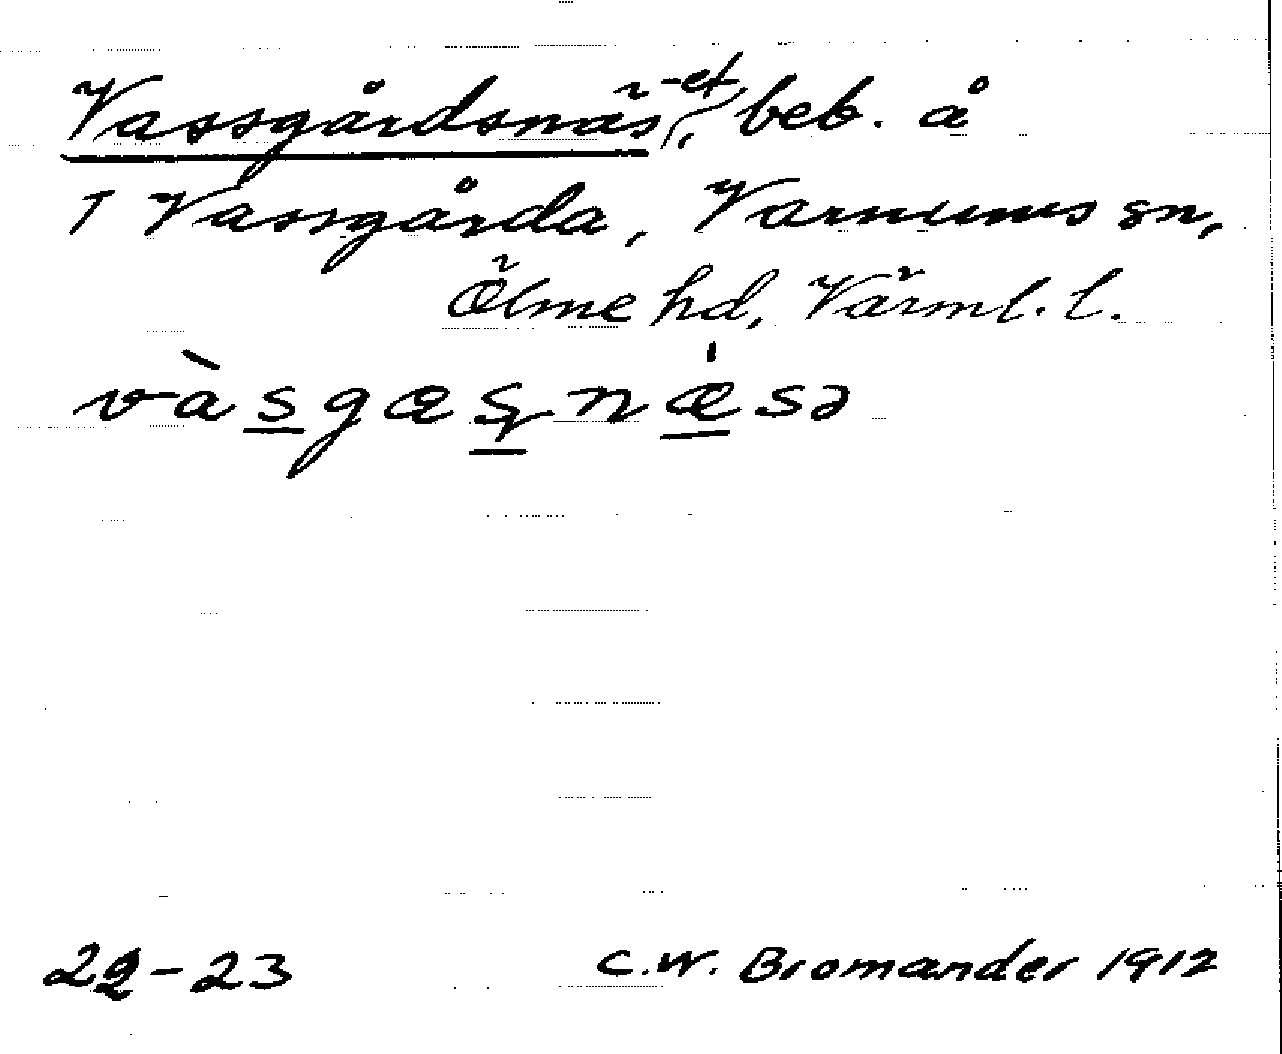 Vassgårdsnäs, -et, beb. å
1 Vassgårda, Varnums sn,
Ölme hd, Värml. l.
vàsgæșnæ̍sə
22-23 C.W. Bromander 1912